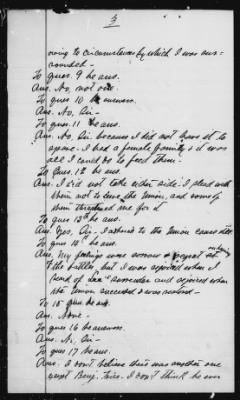 3
owing to circumstances by which I was sur-
rounded -
To ques. 9 he ans.
Ans. No, not one.
To ques 10 he answers.
Ans. No, Sir -
To ques. 11 he ans.
Ans. No, Sir because I did not have it to
spare. I had a female family & it was
all I could do to feed them.
To Ques. 12 he ans.
Ans. I did not take either side. I plead with
them not to leave the Union, and some of
them threatened me for it
To ques 13th he ans.
Ans. Yes, Sir - I adhered to the Union cause
To ques 14th he ans.
Ans. My feelings were sorrow & regret at
the battles, but I was rejoiced when I
heard of Lee's surrender and rejoiced when
the Union succeeded & was restored -
To 15 ques he ans.
Ans. None -
To ques 16 he answers.
Ans. No, Sir -
To ques 17 he ans.
Ans. I don't believe there was another one
except Benj. I don't think he ever